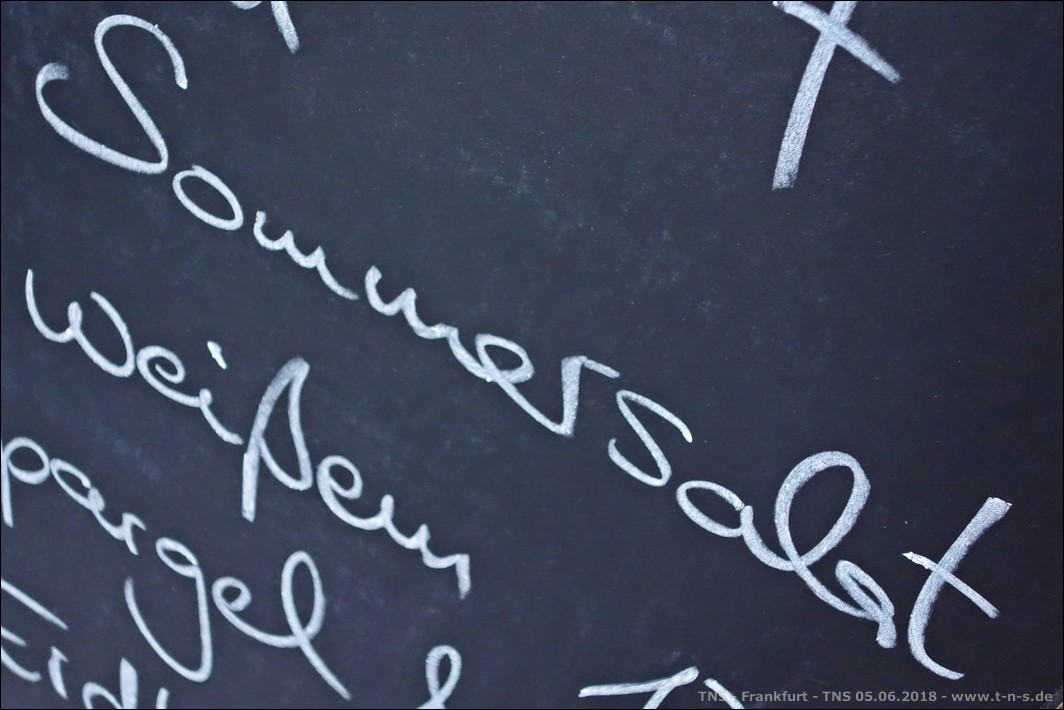 Sommersalat
Weißem
pargel
&
TNS - Frankfurt - TNS 05.06.2018 - www.t-n-s.de